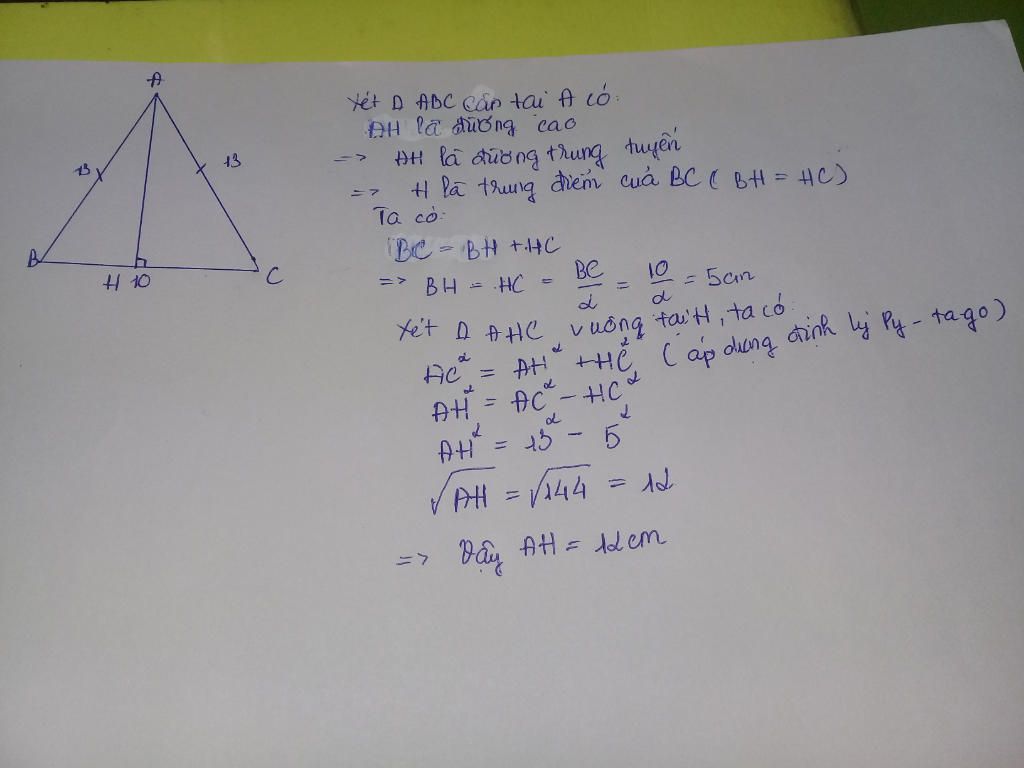 A
13
13
B
H 10
C
Xét Δ ABC cân tại A có:
AH là đường cao
=> AH là đường trung tuyến
=> H là trung điểm cuả BC ( BH = HC )
Ta có:
BC = BH + HC
=> BH = HC = BC/2 = 10/2 = 5cm
Xét Δ AHC vuông tại H, ta có:
AC² = AH² + HC² ( áp dụng định lý Py - ta go )
AH² = AC² - HC²
AH² = 13² - 5²
√AH = √144 = 12
=> Vậy AH = 12cm